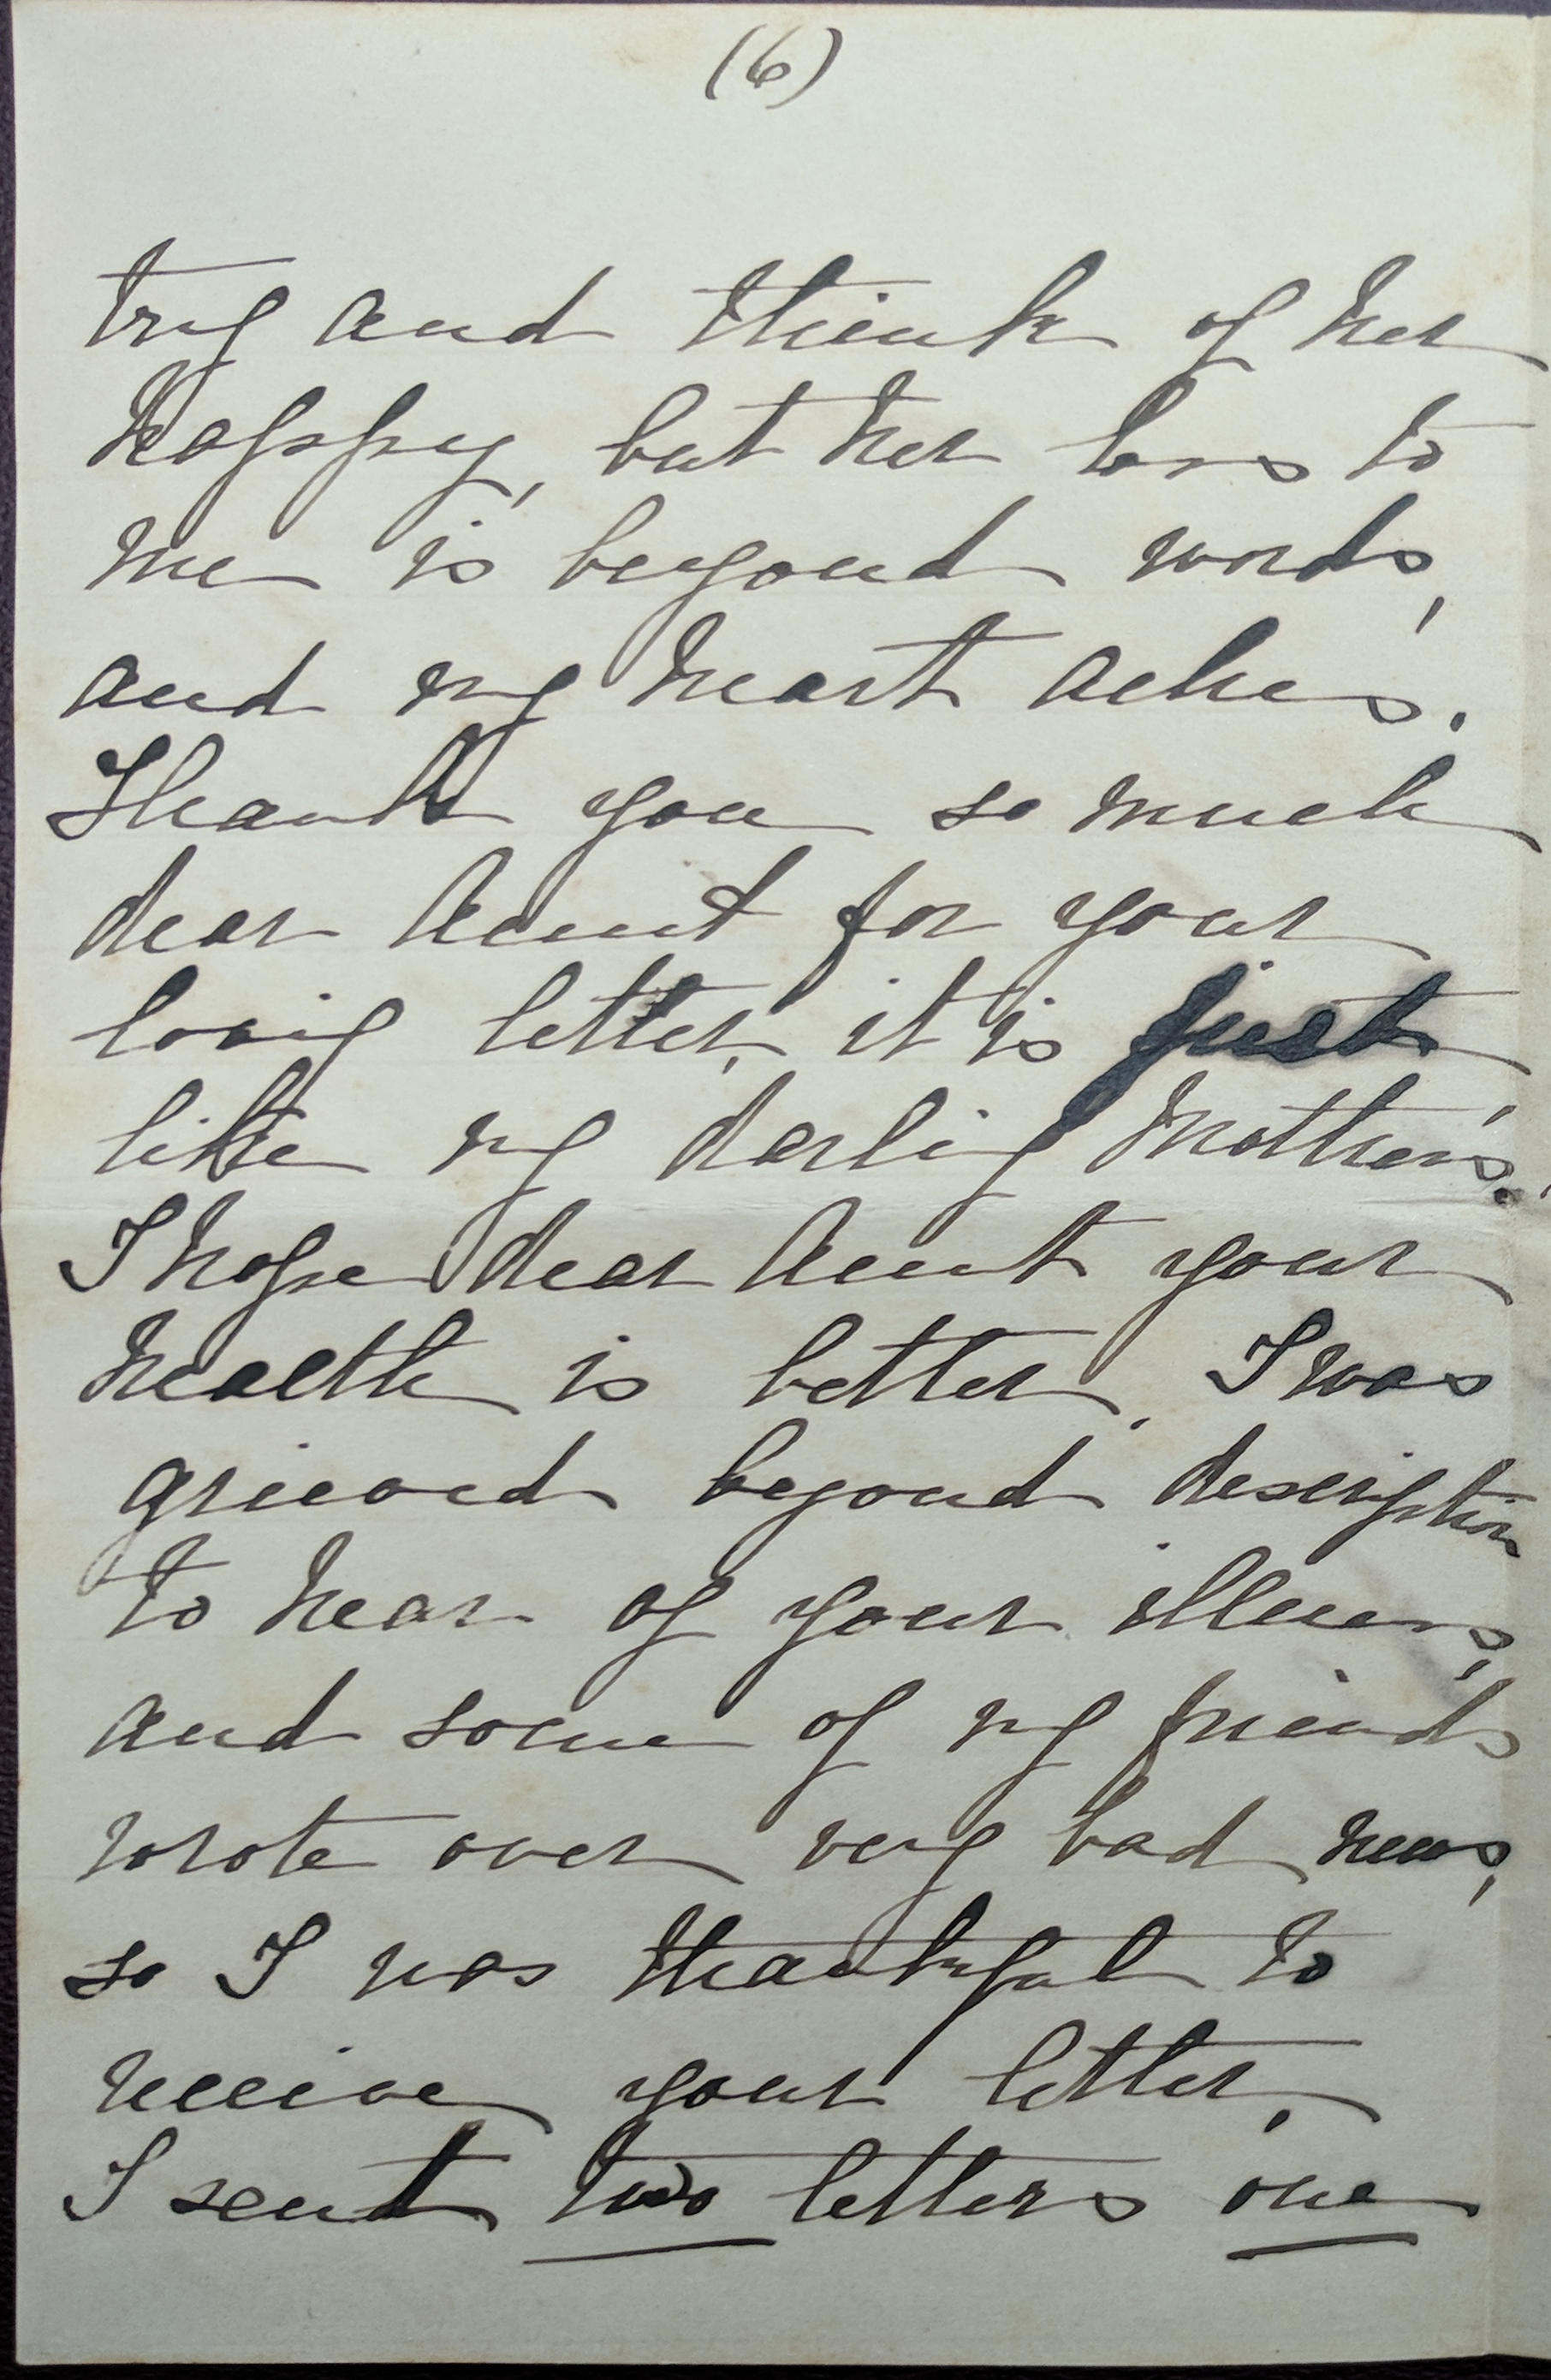 (6)
try and think of her
happy, but her loss to
me is beyond words,
and my heart aches.
Thank you so much
dear Aunt for your
loving letter, it is just
like my darling Mother's.
I hope dear Aunt your
health is better. I was
grieved beyond description
to hear of your illness,
and some of my friends
wrote over very bad news,
so I was thankful to
receive your letter,
I sent two letters one